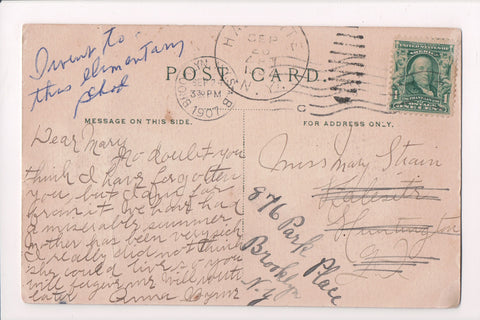 I went to
this elementary
school
POST CARD
SEP
1907
N.Y.
3 30 PM
MESSAGE ON THIS SIDE.
FOR ADDRESS ONLY.
Dear Mary
No doubt you
think I have forgotten
you but I
know it. We have had
a miserably summer
Mother has been very sick
I really did not think
she could live. If you
will forgive me will write
later Anna
Miss Mary Strain
Huntington
876 Park Place
Brooklyn
N.Y.